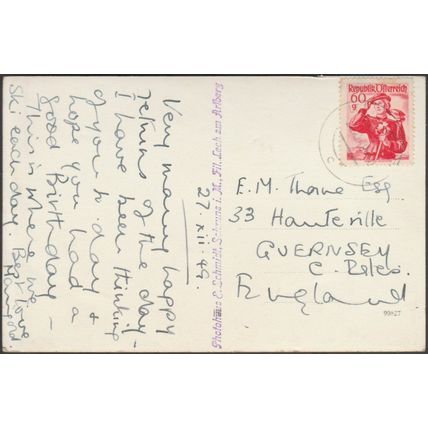 27. xii. 49.
Very many happy
returns of the day –
I have been thinking
of you to-day &
hope you had a
good Birthday –
This is where we
Ski each day. Best love
Photohaus C. Schmidt, Schruns i. M., Fil. Lech am Arlberg
Republik Österreich
60
g
E. M. Thorne Esq
33 Hauteville
GUERNSEY
C. Isles.
England
99827